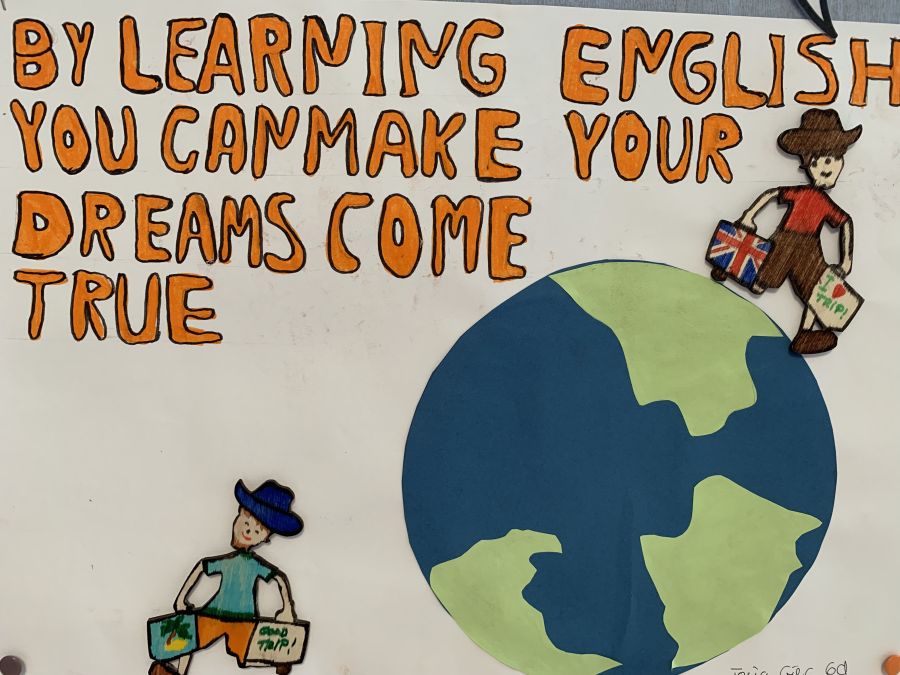 BY LEARNING ENGLISH
YOU CAN MAKE YOUR
DREAMS COME
TRUE
I
TRIP!
GOOD
TRIP!
6d